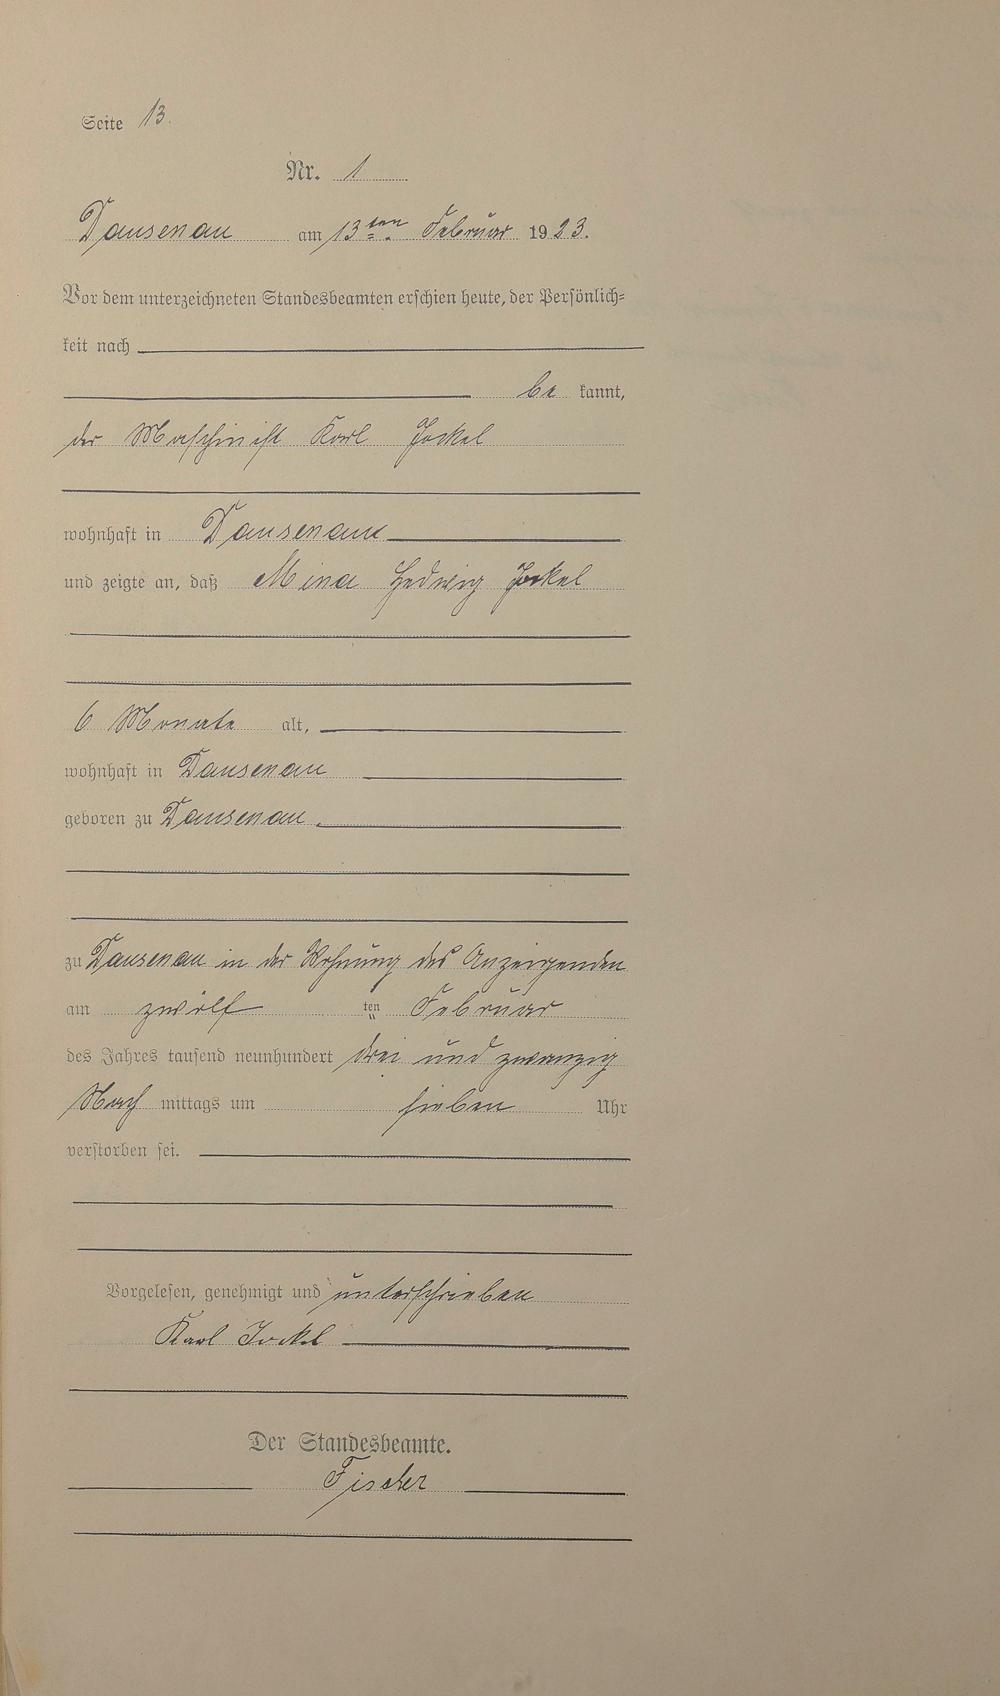 Seite 13.
Nr. 1
Dausenau am 13ten Februar 1923.
Vor dem unterzeichneten Standesbeamten erschien heute, der Persönlich=
keit nach
be kannt,
der Maschinist Karl Jockel
wohnhaft in Dausenau
und zeigte an, daß Mina Hedwig Jockel
6 Monate alt,
wohnhaft in Dausenau
geboren zu Dausenau,
zu Dausenau in der Wohnung des Anzeigenden
am zwölf ten Februar
des Jahres tausend neunhundert drei und zwanzig
Nach mittags um sieben Uhr
verstorben sei.
Vorgelesen, genehmigt und unterschrieben
Karl Jockel
Der Standesbeamte.
Fischer